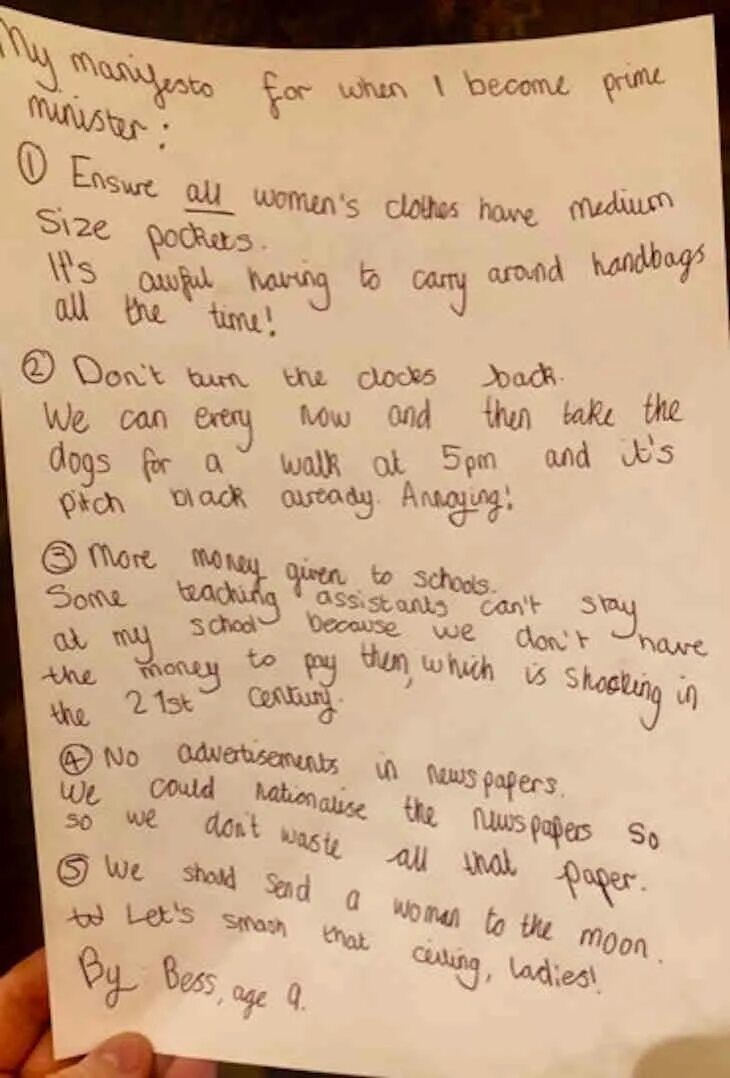 My manifesto for when I become prime
minister:
① Ensure all women's clothes have medium
size pockets.
It's awful having to carry around handbags
all the time!
② Don't turn the clocks back.
We can every now and then take the
dogs for a walk at 5pm and it's
pitch black already. Annoying!
③ More money given to schools.
Some teaching assistants can't stay
at my school because we don't have
the money to pay them, which is shocking in
the 21st century.
④ No advertisements in newspapers.
We could nationalise the newspapers so
so we don't waste all that paper.
⑤ We should send a woman to the moon.
Let's smash that ceiling, ladies!
By Bess, age 9.